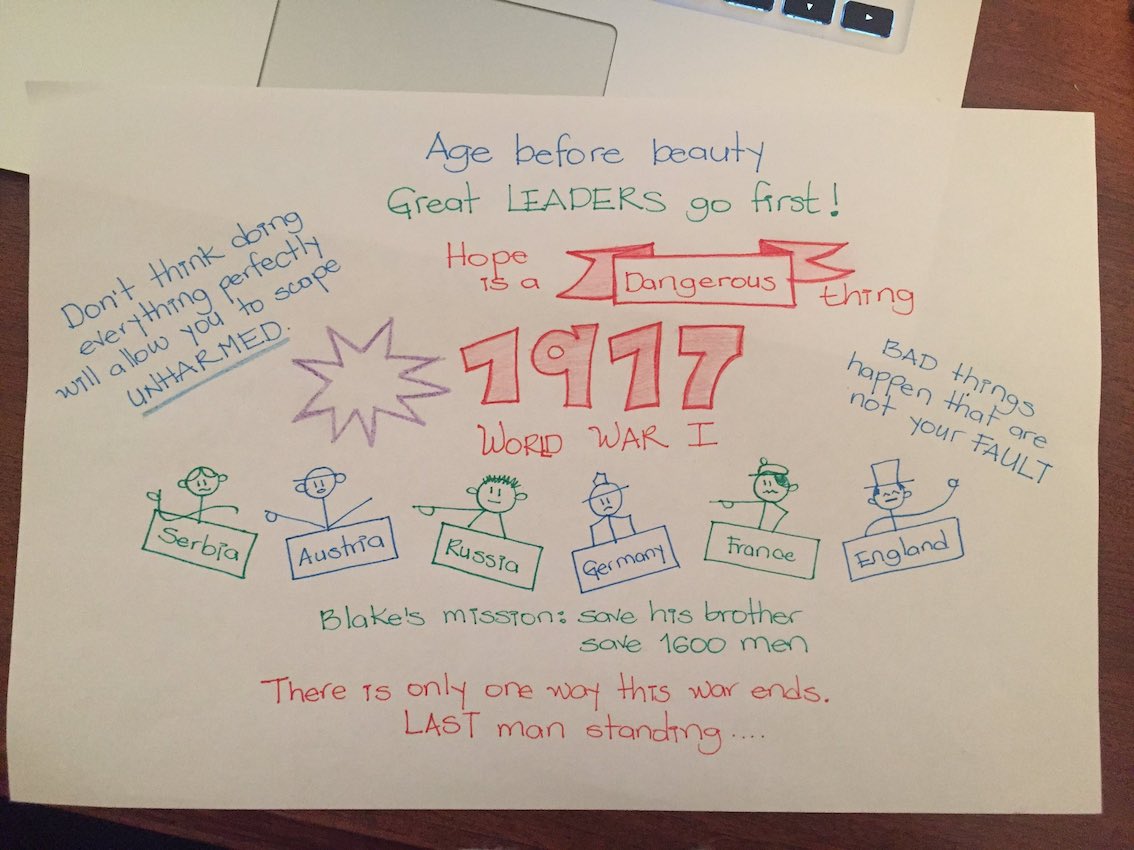 Age before beauty
Great LEADERS go first!
Hope
is a Dangerous thing
Don't think doing
everything perfectly
will allow you to scape
UNHARMED.
1917
WORLD WAR I
BAD things
happen that are
not your FAULT
Serbia
Austria
Russia
Germany
France
England
Blake's mission: save his brother
save 1600 men
There is only one way this war ends.
LAST man standing....